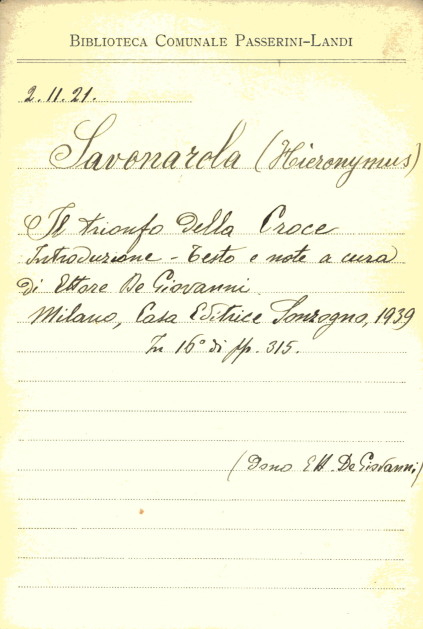 BIBLIOTECA COMUNALE PASSERINI-LANDI
2.11.21.
Savonarola (Hieronymus)
Il trionfo della Croce
Introduzione - Testo e note a cura
di Ettore De Giovanni
Milano, Casa Editrice Sonzogno, 1939
In 16° di pp. 315.
(Dono Ett. De Giovanni)